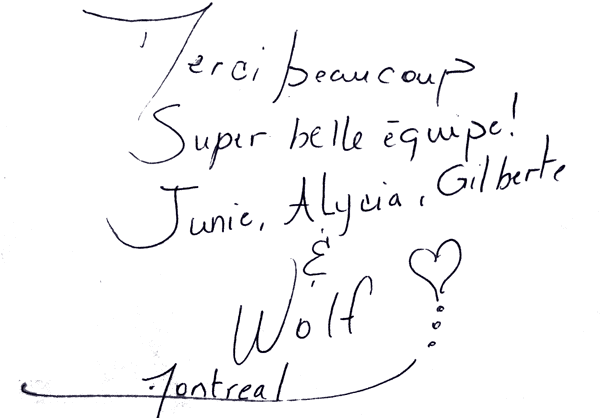 Merci beaucoup
Super belle équipe!
Junie, Alycia, Gilberte
&
Wolf
Montreal